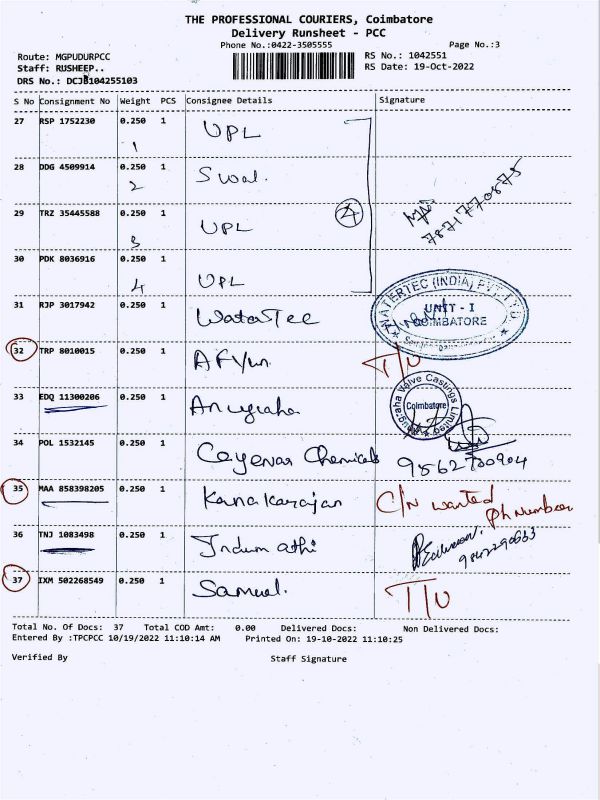 THE PROFESSIONAL COURIERS, Coimbatore
Delivery Runsheet - PCC
Phone No.:0422-3505555 Page No.:3
Route: MGPUDURPCC RS No.: 1042551
Staff: RUSHEEP.. RS Date: 19-Oct-2022
DRS No.: DCJB104255103
S No Consignment No Weight PCS Consignee Details Signature
27 RSP 1752230 0.250 1 UPL
1
28 DDG 4509914 0.250 1 Swal.
2
7871770875
29 TRZ 35445588 0.250 1 UPL
3
4
30 PDK 8036916 0.250 1 UPL
4
31 RJP 3017942 0.250 1 WaterTec
WATERTEC (INDIA) PVT. LTD
UNIT - I
COIMBATORE
32 TRP 8010015 0.250 1
T/U
33 EDQ 11300206 0.250 1 Anugraha
Anugraha Valve Castings Limited
Coimbatore
34 POL 1532145 0.250 1 Cayenar Chemicals 9562730904
35 MAA 858398205 0.250 1 Kanakarajan C/N wanted
Ph Number
36 TNJ 1083498 0.250 1 Indumathi
9842290663
37 IXM 502268549 0.250 1 Samuel. T/U
Total No. Of Docs: 37 Total COD Amt: 0.00 Delivered Docs: Non Delivered Docs:
Entered By :TPCPCC 10/19/2022 11:10:14 AM Printed On: 19-10-2022 11:10:25
Verified By Staff Signature